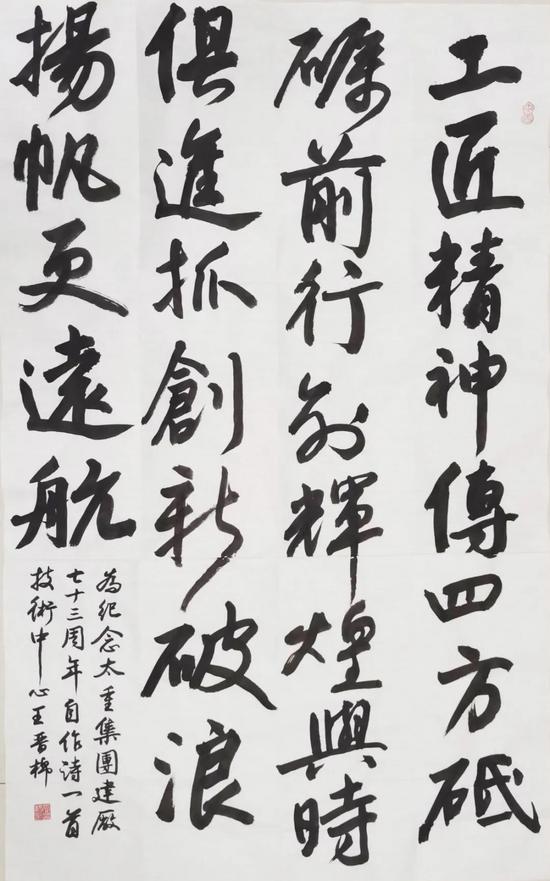 工匠精神傳四方砥
礪前行創輝煌與時
俱進抓創新破浪
揚帆更遠航
為紀念太重集團建廠
七十三周年自作詩一首
技術中心王晋棉